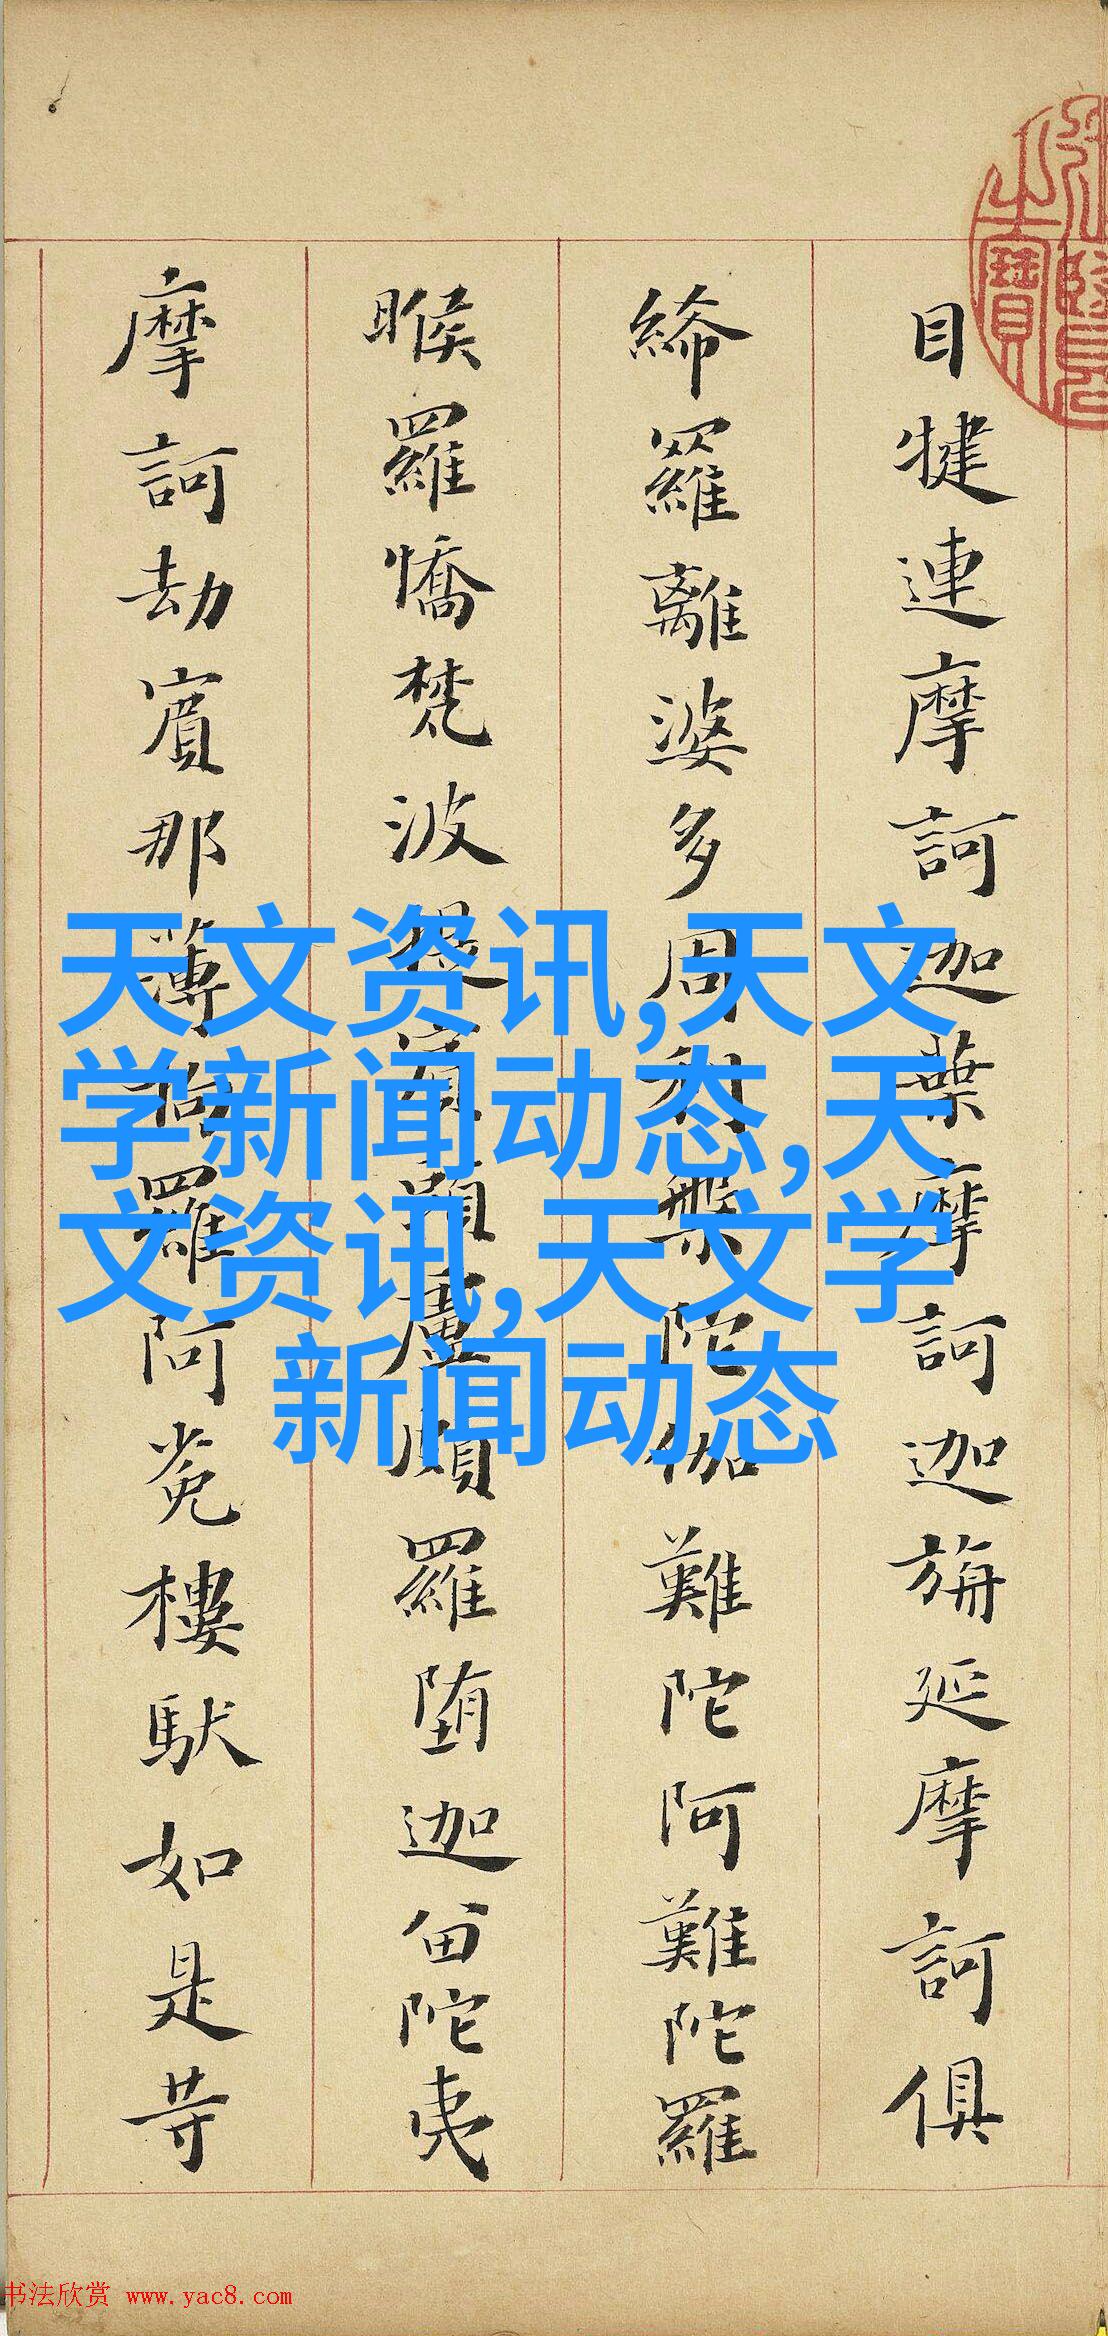 目犍連摩訶迦葉摩訶迦旃延摩訶俱
絺羅離婆多周利槃陀伽難陀阿難陀羅
睺羅憍梵波提賓頭盧頗羅堕迦留陀夷
摩訶劫賓那薄拘羅阿㝹樓馱如是等
天文资讯,天文
学新闻动态,天
文资讯,天文学
新闻动态
之寶
书法欣赏 www.yac8.com